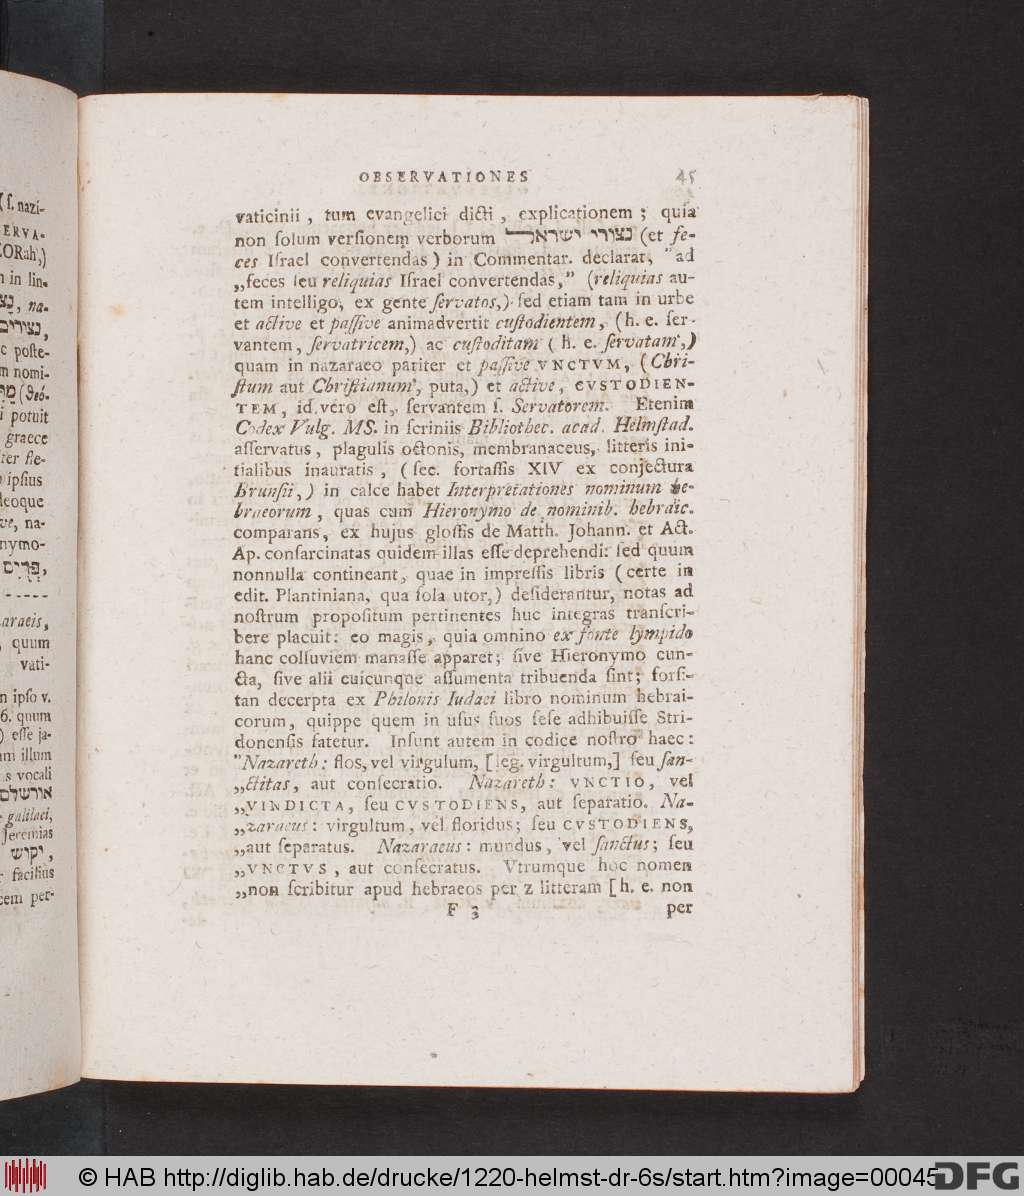 OBSERVATIONES 45
vaticinii, tum evangelici dicti, explicationem; quia
non ſolum verſionem verborum נצורי ישראל (et fe-
ces Iſrael convertendas) in Commentar. declarat, "ad
„feces ſeu reliquias Iſrael convertendas," (reliquias au-
tem intelligo, ex gente ſervatos,) ſed etiam tam in urbe
et active et paſſive animadvertit cuſtodientem, (h. e. ſer-
vantem, ſervatricem,) ac cuſtoditam (h. e. ſervatam,)
quam in nazaraeo pariter et paſſive VNCTVM, (Chri-
ſtum aut Chriſtianum, puta,) et active, CVSTODIEN-
TEM, id vero eſt, ſervantem ſ. Servatorem. Etenim
Codex Vulg. MS. in ſcriniis Bibliothec. acad. Helmſtad.
aſſervatus, plagulis octonis, membranaceus, litteris ini-
tialibus inauratis, (ſec. fortaſſis XIV ex conjectura
Brunſii,) in calce habet Interpretationes nominum he-
braeorum, quas cum Hieronymo de nominib. hebraic.
comparans, ex hujus gloſſis de Matth. Johann. et Act.
Ap. conſarcinatas quidem illas eſſe deprehendi: ſed quum
nonnulla contineant, quae in impreſſis libris (certe in
edit. Plantiniana, qua ſola utor,) deſiderantur, notas ad
noſtrum propoſitum pertinentes huc integras tranſcri-
bere placuit: eo magis, quia omnino ex fonte lympido
hanc colluviem manaſſe apparet; ſive Hieronymo cun-
cta, ſive alii cuicunque aſſumenta tribuenda ſint; forſi-
tan decerpta ex Philonis Iudaei libro nominum hebrai-
corum, quippe quem in uſus ſuos ſeſe adhibuiſſe Stri-
donenſis fatetur. Inſunt autem in codice noſtro haec:
"Nazareth: flos, vel virgulum, [leg. virgultum,] ſeu ſan-
„ctitas, aut conſecratio. Nazareth: VNCTIO, vel
„VINDICTA, ſeu CVSTODIENS, aut ſeparatio. Na-
„zaraeus: virgultum, vel floridus; ſeu CVSTODIENS,
„aut ſeparatus. Nazaraeus: mundus, vel ſanctus; ſeu
„VNCTVS, aut conſecratus. Vtrumque hoc nomen
„non ſcribitur apud hebraeos per z litteram [h. e. non
F 3 per
© HAB http://diglib.hab.de/drucke/1220-helmst-dr-6s/start.htm?image=00045
DFG